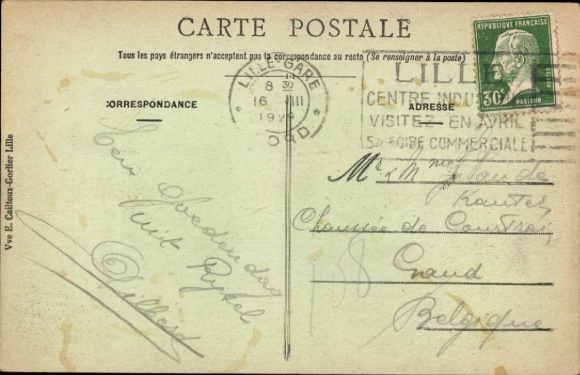 CARTE POSTALE
Tous les pays étrangers n'acceptent pas la correspondance au recto (Se renseigner à la poste)
CORRESPONDANCE
ADRESSE
REPUBLIQUE FRANÇAISE
30c
PASTEUR
POSTES
LILLE-GARE
8 30
16 III
192
NORD
LILLE
CENTRE INDU
VISITEZ EN AVRIL
SA FOIRE COMMERCIALE
Een Goedendag
Uuit Rijssel
Gilbert
Mr & Mme Vande
Kanter
Chaussée de Courtrai
158
Gand
Belgique
Vve E. Cailteux-Gortier Lille